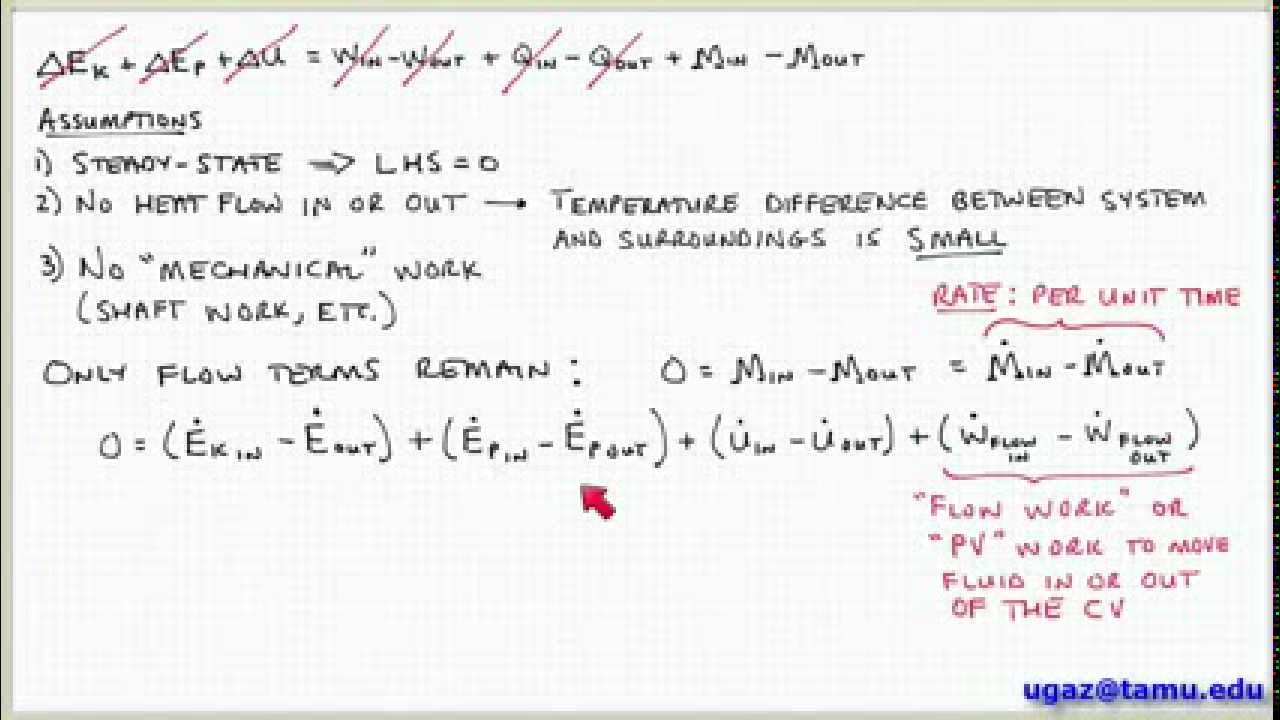 ΔE_K + ΔE_P + ΔU = W_IN - W_OUT + Q_IN - Q_OUT + M_IN - M_OUT
ASSUMPTIONS
1) STEADY-STATE ⇒ LHS = 0
2) NO HEAT FLOW IN OR OUT → TEMPERATURE DIFFERENCE BETWEEN SYSTEM
AND SURROUNDINGS IS SMALL
3) NO "MECHANICAL" WORK
(SHAFT WORK, ETC.)
RATE: PER UNIT TIME
ONLY FLOW TERMS REMAIN: 0 = M_IN - M_OUT = Ṁ_IN - Ṁ_OUT
0 = (Ė_K IN - Ė_OUT) + (Ė_P IN - Ė_P OUT) + (U̇_IN - U̇_OUT) + (Ẇ_FLOW IN - Ẇ_FLOW OUT)
"FLOW WORK" OR
"PV" WORK TO MOVE
FLUID IN OR OUT
OF THE CV
ugaz@tamu.edu